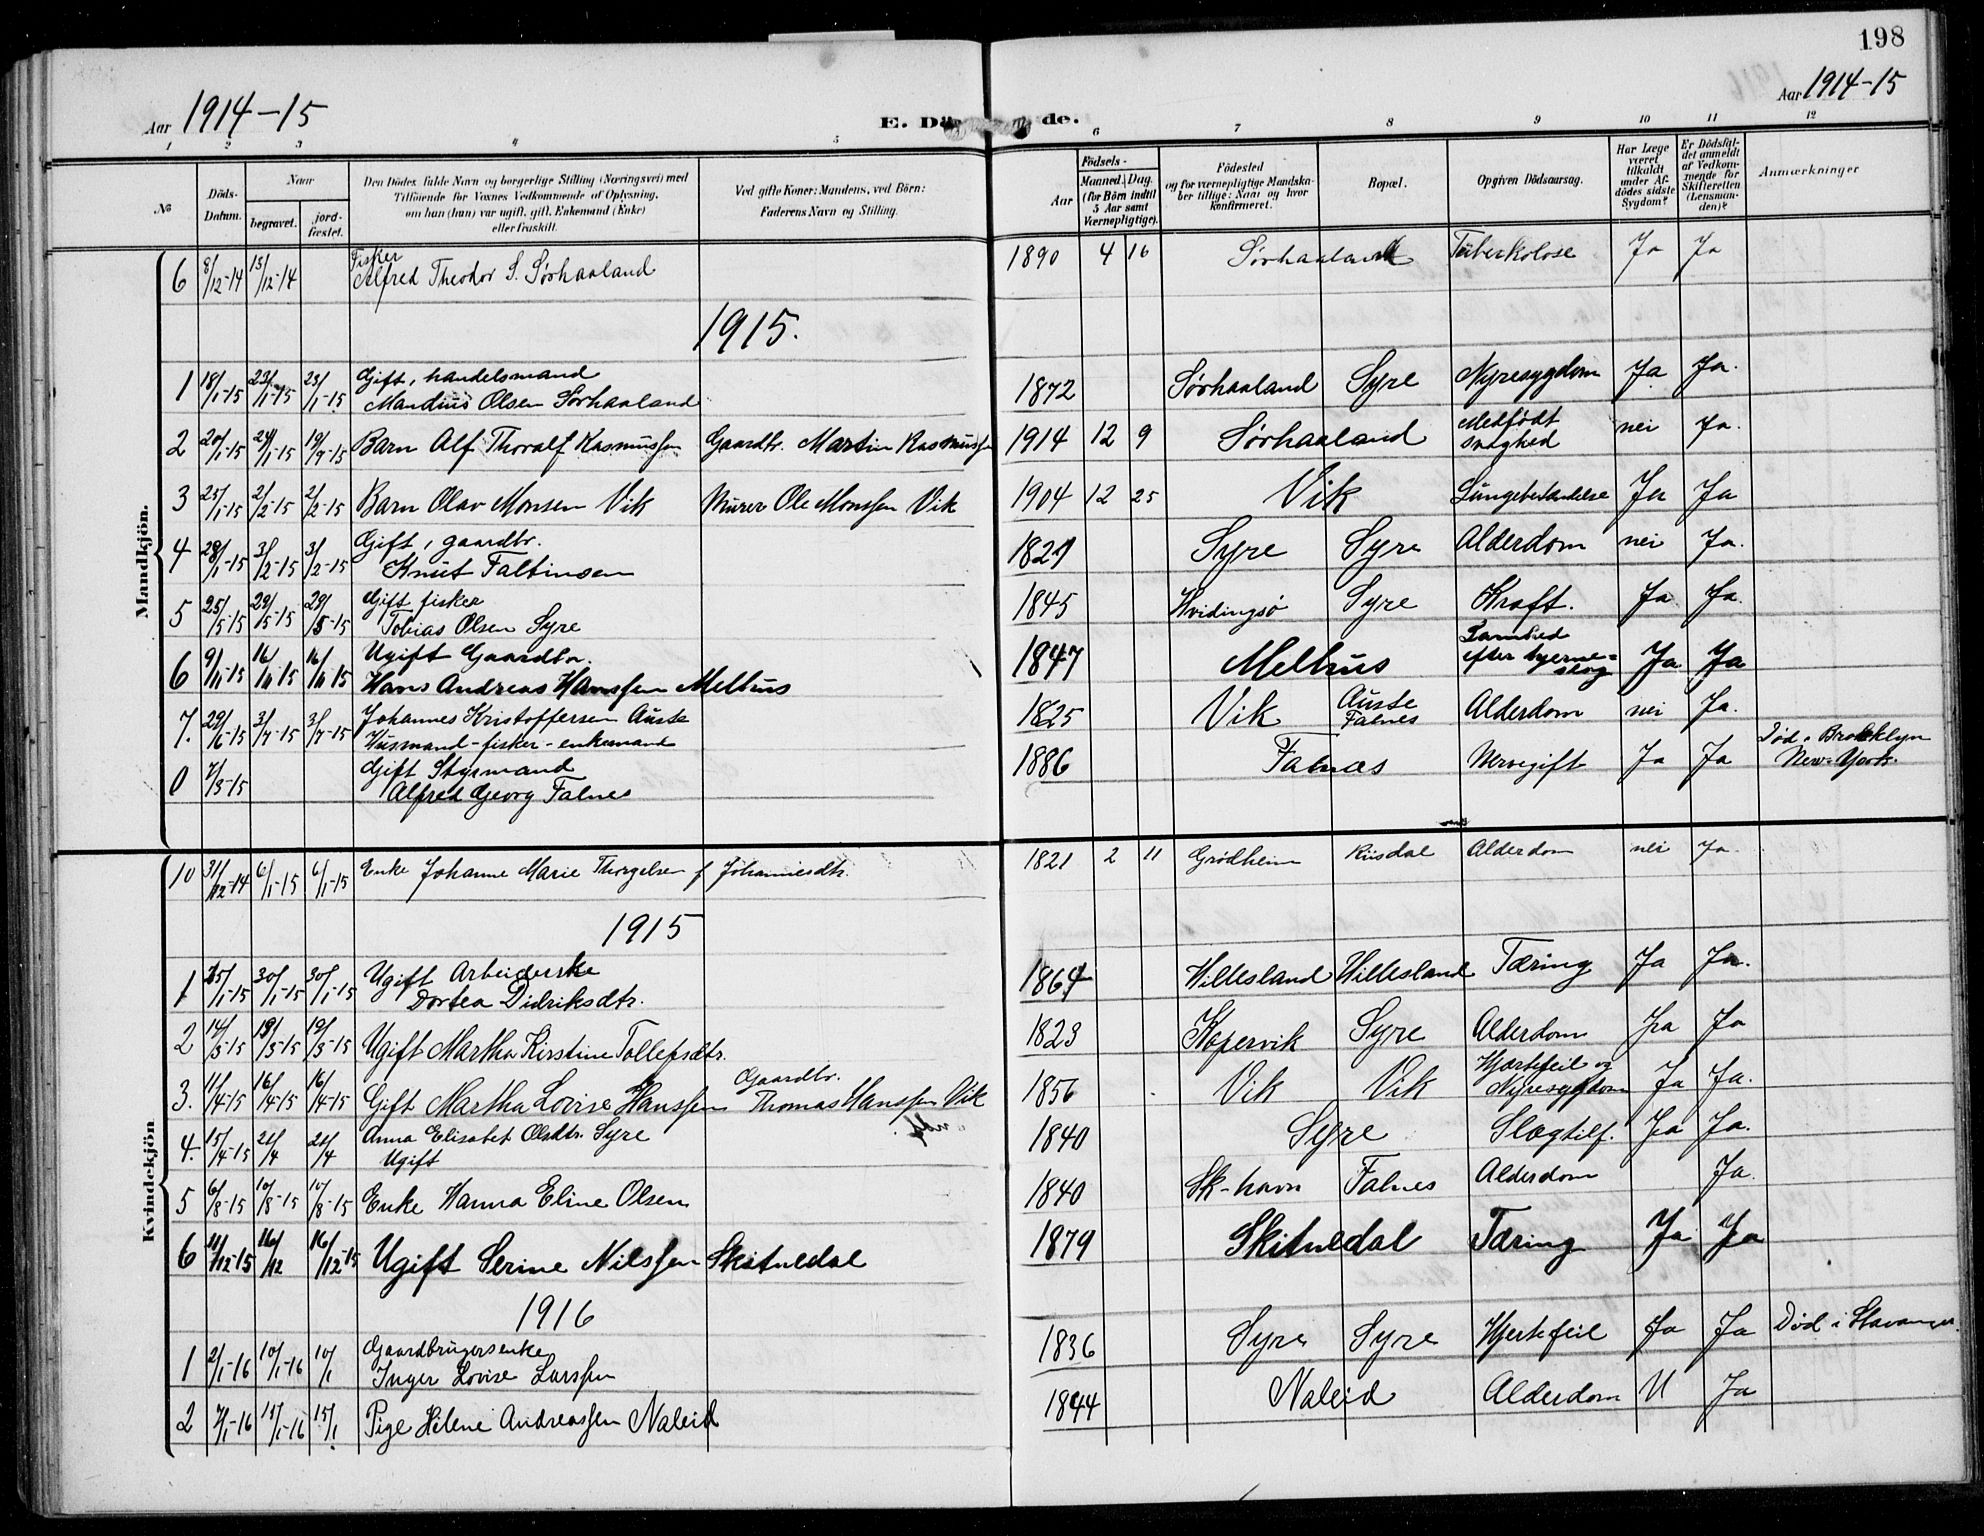 198
Aar 1914-15
E. Dö de.
Aar 1914-15
1 2 3 4 5 6 7 8 9 10 11 12
No
Döds-Datum.
Naar
begravet. jord-fæstet.
Den Dödes fulde Navn og borgerlige Stilling (Næringsvei) med
Tilföiende for Voxnes Vedkommende af Oplysning,
om han (hun) var ugift, gift, Enkemand (Enke)
eller fraskilt.
Ved gifte Koner: Mandens, ved Börn:
Faderens Navn og Stilling.
Födsels-
Aar Maaned. Dag.
(for Börn indtil
5 Aar samt
Værnepligtige).
Födested
og for værnepligtige Mandska-
ber tillige: Naar og hvor
konfirmeret.
Bopæl.
Opgiven Dödsaarsag.
Har Læge
været
tilkaldt
under Af-
dödes sidste
Sygdom?
Er Dödsfal-
det anmeldt
af Vedkom-
mende for
Skifteretten
(Lensman-
den)?
Anmærkninger
Mandkjön.
6 8/12-14 13/12-14 Fisker Alfred Theodor S. Sørhaaland 1890 4 16 Sørhaaland Tüberkolose Ja Ja
1915.
1 18/1-15 23/1-15 23/1-15 Gift, handelsmand Mandius Olsen Sørhaaland 1872 Sørhaaland Syre Nyresygdom Ja Ja.
2 20/1-15 24/1-15 19/9-15 Barn Alf Thoralf Rasmussen Gaardbr. Martin Rasmussen 1914 12 9 Sørhaaland Medfødt svaghed nei Ja.
3 25/1-15 2/2-15 2/2-15 Barn Olav Monsen Vik Murer Ole Monssen Vik 1904 12 25 Vik Lungebetændelse Ja Ja
4 28/1-15 3/2-15 3/2-15 Gift, gaardbr. Knut Faltinsen 1827 Syre Syre Alderdom nei Ja.
5 25/5-15 29/5-15 29/5-15 Gift fisker Tobias Olsen Syre 1845 Hvidingsø Syre Kræft. Ja Ja.
6 9/11-15 16/11-15 16/11-15 Ugift Gaardbr. Hans Andreas Hanssen Melhus 1847 Melhus Lamhed efter hjerneslag Ja Ja
7. 29/6-15 3/7-15 3/7-15 Johannes Kristoffersen Auste Husmand-fisker-enkemand 1825 Vik Auste Falnes Alderdom nei Ja.
0 7/3-15 Gift Styrmand Alfred Georg Falnes 1886 Falnes Nervegift Ja Ja Død i Brokklyn New-York.
Kvindekjön
10 31/12-14 6/1-15 6/1-15 Enke Johanne Marie Thorgelsen f Johannesdtr. 1821 2 11 Grødheim Riisdal Alderdom nei Ja
1915
1 25/1-15 30/1-15 30/1-15 Ugift Arbeiderske Dortea Didriksdtr. 1864 Hillesland Hillesland Tæring Ja Ja.
2 14/3-15 19/3-15 19/3-15 Ugift Martha Kirstine Tollefsdtr. 1823 Kopervik Syre Alderdom Ja Ja
3. 11/4-15 16/4-15 16/4-15 Gift Martha Lovise Hanssen Gaardbr. Thomas Hanssen Vik 1856 Vik Vik Hjertefeil og Nyresygdom Ja Ja.
4. 15/4-15 21/4 21/4 Anna Elisabet Olsdtr. Syre Ugift 1840 Syre Slagtilf. Ja Ja.
5 6/8-15 10/8-15 10/8-15 Enke Hanna Eline Olsen 1840 Sk-havn Falnes Alderdom Ja.
6 11/12-15 16/12 16/12-15 Ugift Serine Nilssen Skitnedal 1879 Skitnedal Tæring Ja Ja
1916
1 2/1-16 10/1-16 10/1 Gaardbrugersenke Inger Lovise Larssen 1836 Syre Syre Hjertefeil Ja Ja Død i Stavanger.
2 7/1-16 15/1-16 15/1 Pige Helene Andreassen Naleid 1844 Naleid Alderdom N Ja